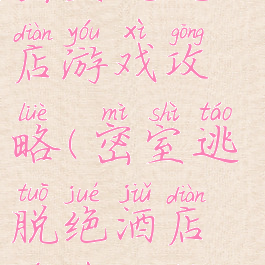 diàn yóu xì gōng
店游戏攻
lüè mì shì táo
略(密室逃
tuō jué jiǔ diàn
脱绝酒店